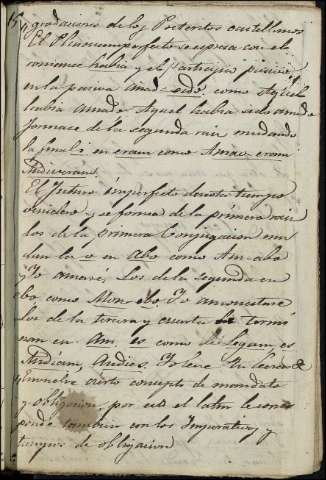 gradaciones de los Preteritos castellanos
El Plusquamperfecto se espresa con el
romance habia y el participio pasivo
en la pasiva Amad-sido, como Aquel
habia amado Aquel habia sido amado
formase de la segunda raiz mudando
la final i en eram como Amav-eram
Audiveram
El futuro imperfecto denota tiempo
venidero, y se forma de la primera raiz
los de la primera Conjugacion mu
dan la o en Abo como Am-abo
Yo amaré, Los de la segunda en
ebo como Mon-ebo Yo amonestaré
los de la tercera y cuarta termi
nan en Am, es como Legam, es
Audiam, Audies. Yo leré Tu leerás
Envuelve cierto concepto de mandato
y obligacion, por eso el latin le cor
ponde tambien con los Imperativos y
tiempos de obligacion